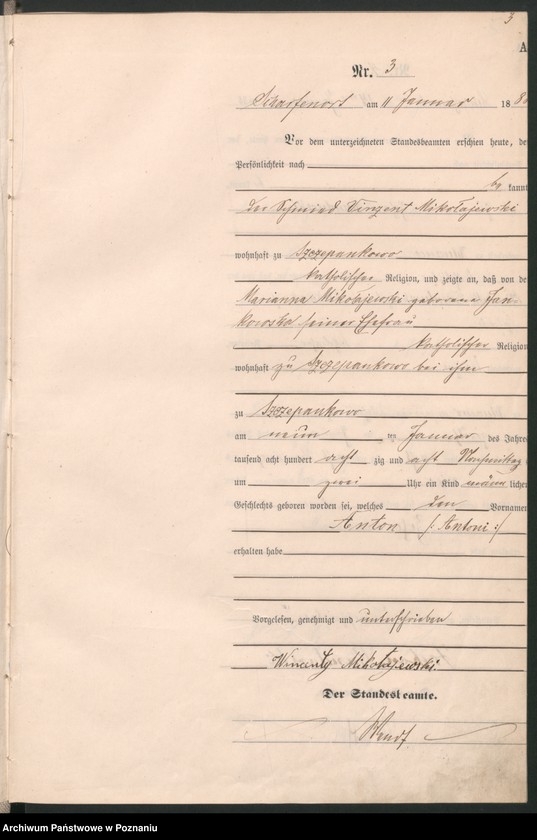 3
A
Nr. 3
Scharfenort am 11 Januar 188
Vor dem unterzeichneten Standesbeamten erschien heute, de
Persönlichkeit nach
be kannt
der Schmied Vinzent Mikołajewski
wohnhaft zu Szczepankowo
katholischer Religion, und zeigte an, daß von de
Marianna Mikołajewski geborene Jan-
kowska seiner Ehefrau
katholischer Religion
wohnhaft zu Szczepankowo bei ihm
zu Szczepankowo
am neun ten Januar des Jahres
tausend acht hundert acht zig und acht Nachmittag
um zwei Uhr ein Kind männ licher
Geschlechts geboren worden sei, welches den Vornamen
Anton /: Antoni :/
erhalten habe
Vorgelesen, genehmigt und unterschrieben
Wincenty Mikołajewski
Der Standesbeamte.
Archiwum Państwowe w Poznaniu